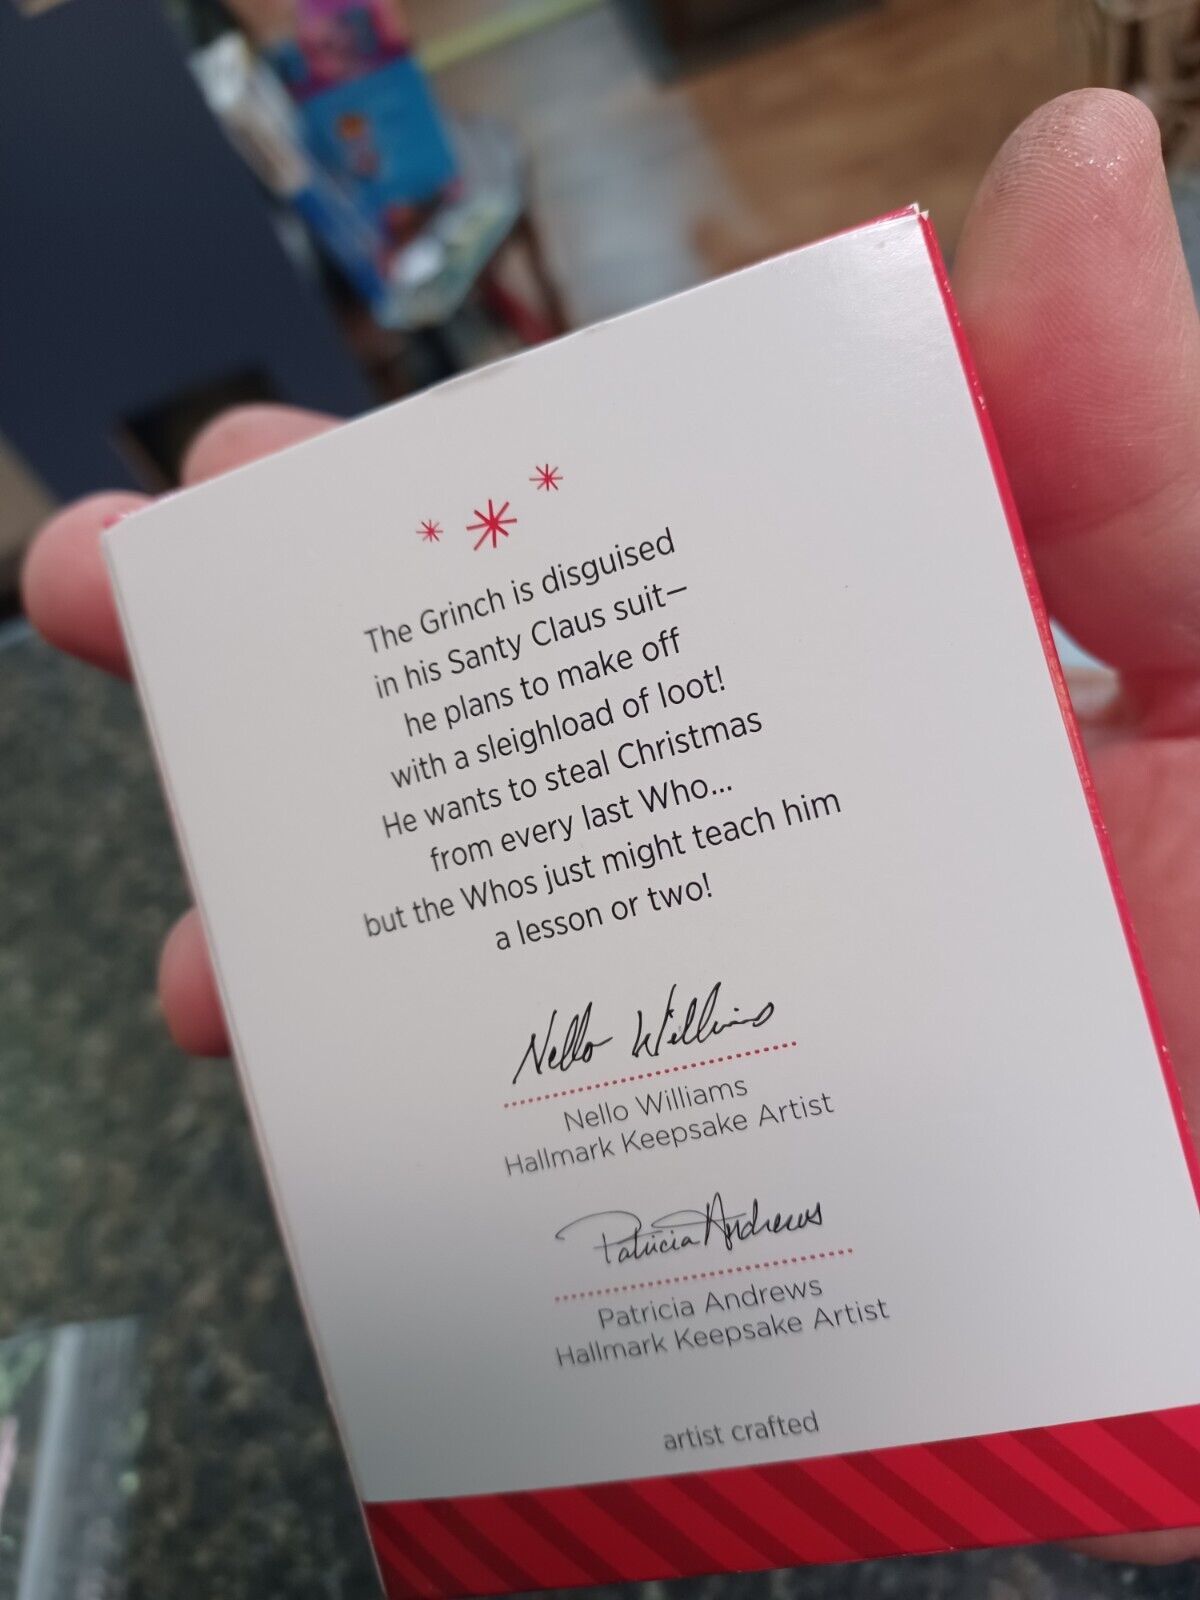 The Grinch is disguised
in his Santy Claus suit—
he plans to make off
with a sleighload of loot!
He wants to steal Christmas
from every last Who...
but the Whos just might teach him
a lesson or two!
Nello Williams
Nello Williams
Hallmark Keepsake Artist
Patricia Andrews
Patricia Andrews
Hallmark Keepsake Artist
artist crafted